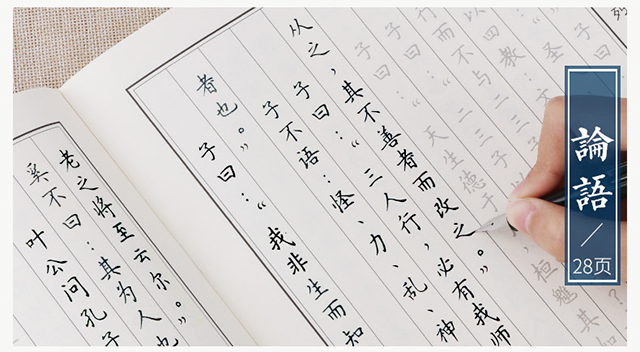 論語
28页
桓魋其
子曰：“天生德于
从之，其不善者而改之。”
子曰：“三人行，必有我师
子不语：怪、力、乱、神
者也。”
子曰：“我非生而知
老之将至云尔。”
奚不曰：其为人也
叶公问孔子